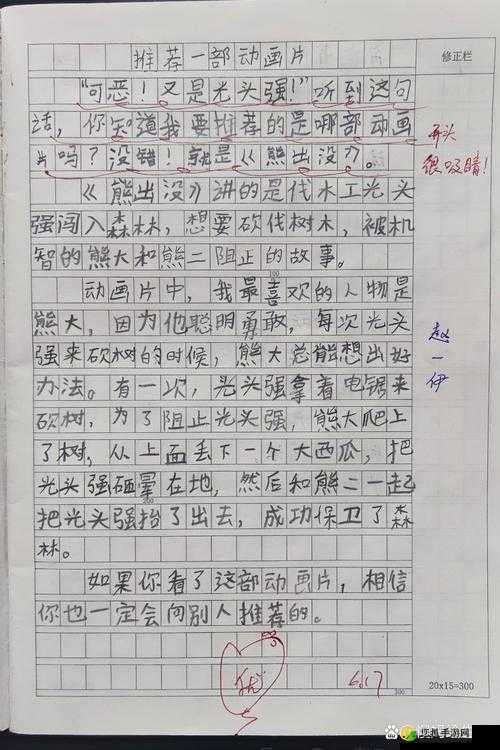 推荐一部动画片
修正栏
“可恶!又是光头强!”听到这句
话,你知道我要推荐的是哪部动画
片吗?没错!就是《熊出没》。
开头
很吸睛!
《熊出没》讲的是伐木工光头
强闯入森林,想要砍伐树木,被机
智的熊大和熊二阻止的故事。
100
动画片中,我最喜欢的人物是
熊大,因为他聪明勇敢,每次光头
强来砍树的时候,熊大总能想出好
办法。有一次,光头强拿着电锯来
砍树,为了阻止光头强,熊大爬上
了树,从上面丢下一个大西瓜,把
光头强砸晕在地,然后和熊二一起
把光头强抬了出去,成功保卫了森
林。
赵
一
伊
如果你看了这部动画片,相信
你也一定会向别人推荐的。
优
6.17
300
20x15=300